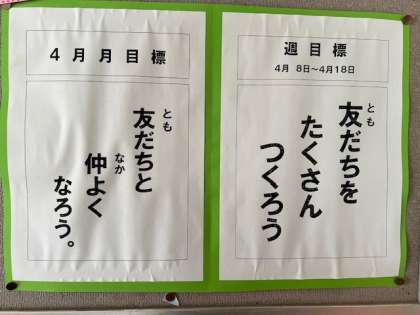 週目標
4月 8日～4月18日
友だちを
とも
たくさん
つくろう
4月月目標
友だちと
とも
仲よく
なか
なろう。